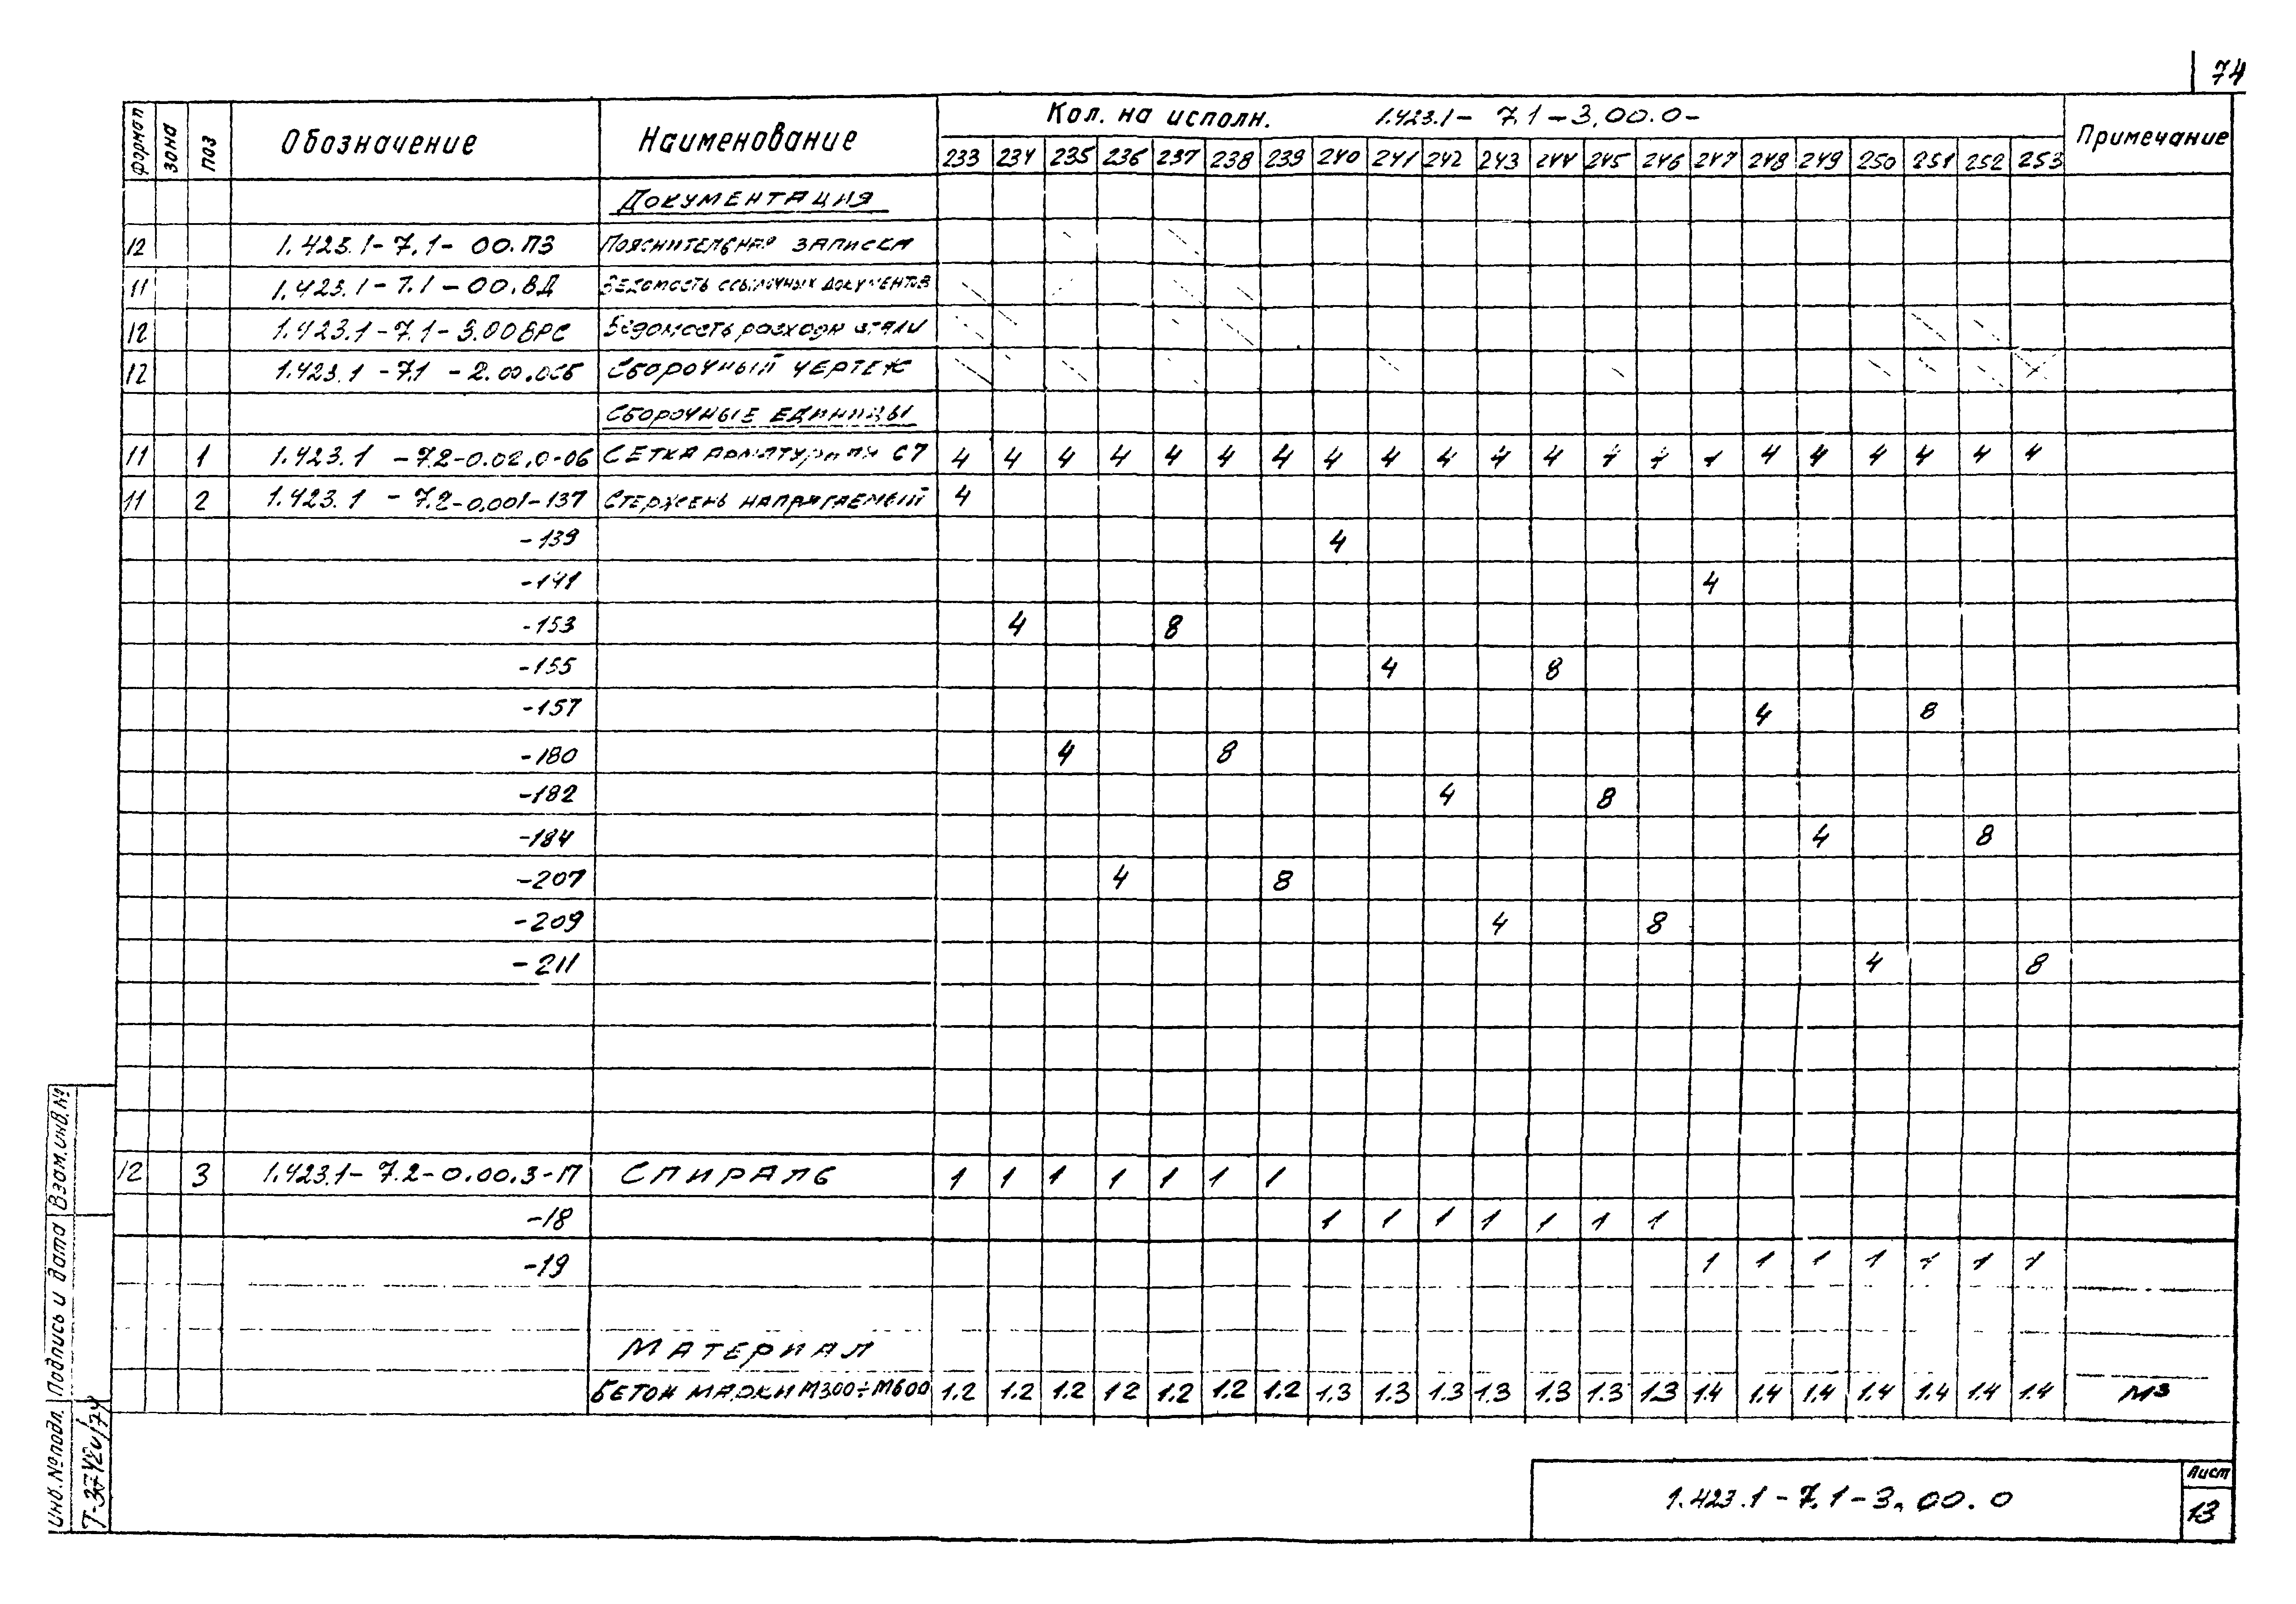 74
Формат Зона Поз Обозначение Наименование Кол. на исполн. 1.423.1-7.1-3.00.0- Примечание
233 234 235 236 237 238 239 240 241 242 243 244 245 246 247 248 249 250 251 252 253
Документация
12 1.423.1-7.1-00.ПЗ Пояснительная записка
11 1.423.1-7.1-00.ВД Ведомость ссылочных документов
12 1.423.1-7.1-3.00ВРС Ведомость расхода стали
12 1.423.1-7.1-2.00.0СБ Сборочный чертеж
Сборочные единицы
11 1 1.423.1-7.2-0.02.0-06 Сетка арматурная С7 4 4 4 4 4 4 4 4 4 4 4 4 4 4 4 4 4 4 4 4
11 2 1.423.1-7.2-0.001-137 Стержень напрягаемый 4
-139 4
-141 4
-153 4 8
-155 4 8
-157 4 8
-180 4 8
-182 4 8
-184 4 8
-207 4 8
-209 4 8
-211 4 8
12 3 1.423.1-7.2-0.00.3-П Спираль 1 1 1 1 1 1 1
-18 1 1 1 1 1 1 1
-19 1 1 1 1 1 1 1
Материал
Бетон марки М300÷М600 1.2 1.2 1.2 1.2 1.2 1.2 1.2 1.3 1.3 1.3 1.3 1.3 1.3 1.3 1.4 1.4 1.4 1.4 1.4 1.4 1.4 м3
Взам.инв.№
Подпись и дата
Инв.№подл.
1.423.1-7.1-3.00.0
Лист
13